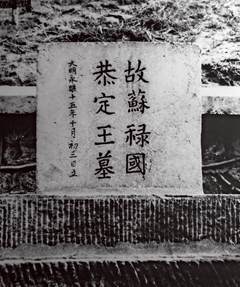 故蘇禄國
恭定王墓
大明永樂十五年十月初三日立